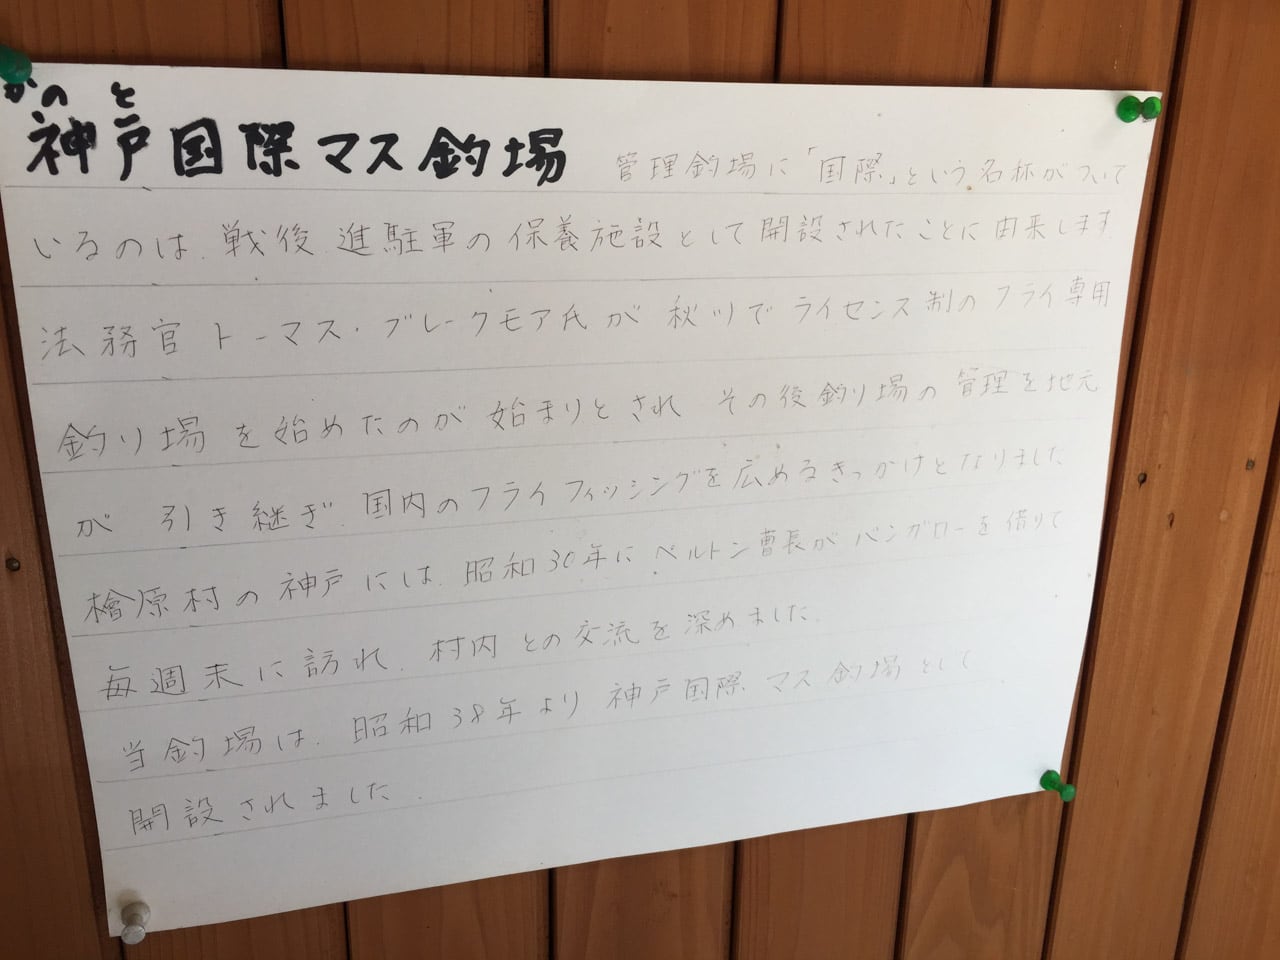 かの と
神戸国際マス釣場 管理釣場に「国際」という名称がついて
いるのは、戦後、進駐軍の保養施設として開設されたことに由来します
法務官 トーマス・ブレークモア氏が 秋川でライセンス制のフライ専用
釣り場を始めたのが始まりとされ その後釣り場の管理を地元
が 引き継ぎ、国内のフライフィッシングを広めるきっかけとなりました
檜原村の神戸には、昭和30年にベルトン曹長がバンガローを借りて
毎週末に訪れ、村内との交流を深めました。
当釣場は、昭和38年より神戸国際マス釣場として
開設されました。